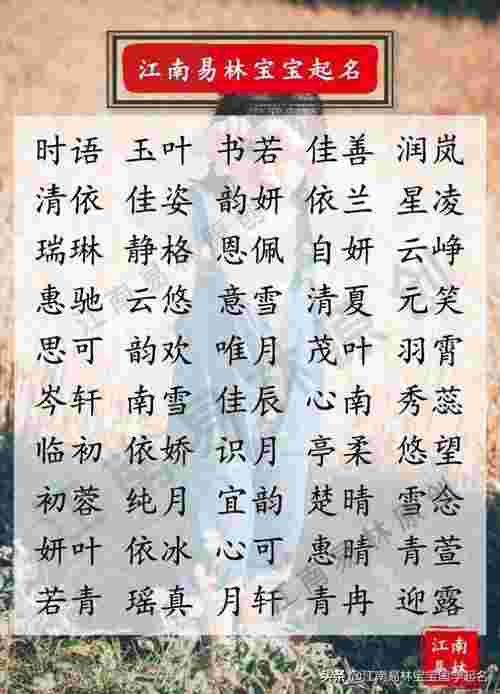 江南易林宝宝起名
时语 玉叶 书若 佳善 润岚
清依 佳姿 韵妍 依兰 星凌
瑞琳 静格 恩佩 自妍 云峥
惠驰 云悠 意雪 清夏 元笑
思可 韵欢 唯月 茂叶 羽霄
岑轩 南雪 佳辰 心南 秀蕊
临初 依娇 识月 亭柔 悠望
初蓉 纯月 宜韵 楚晴 雪念
妍叶 依冰 心可 惠晴 青萱
若青 瑶真 月轩 青冉 迎露
江南
易林
头条 @江南易林宝宝国学起名